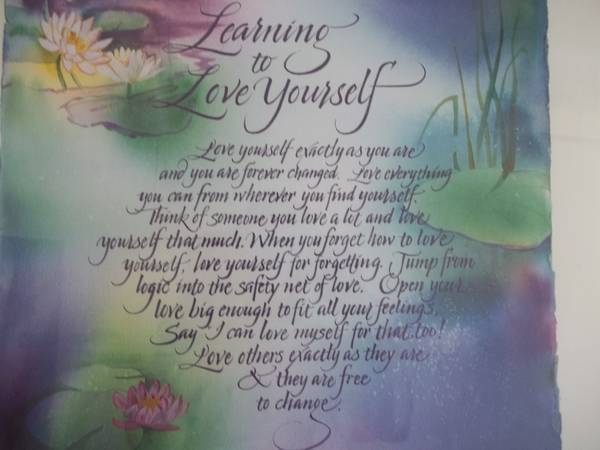 Learning
to
Love Yourself
Love yourself exactly as you are
and you are forever changed. Love everything
you can from wherever you find yourself.
Think of someone you love a lot and love
yourself that much. When you forget how to love
yourself, love yourself for forgetting. Jump from
logic into the safety net of love. Open your
love big enough to fit all your feelings.
Say "I can love myself for that too!
Love others exactly as they are
& they are free
to change.